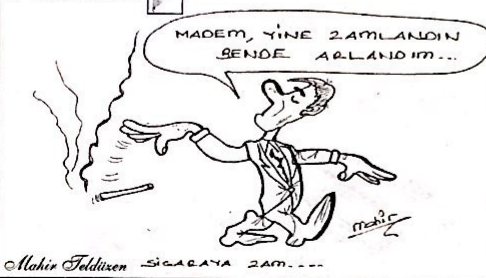 MADEM, YİNE ZAMLANDIN
BENDE ARLANDIM...
mahir
Mahir Teldüzen SİGARAYA ZAM....